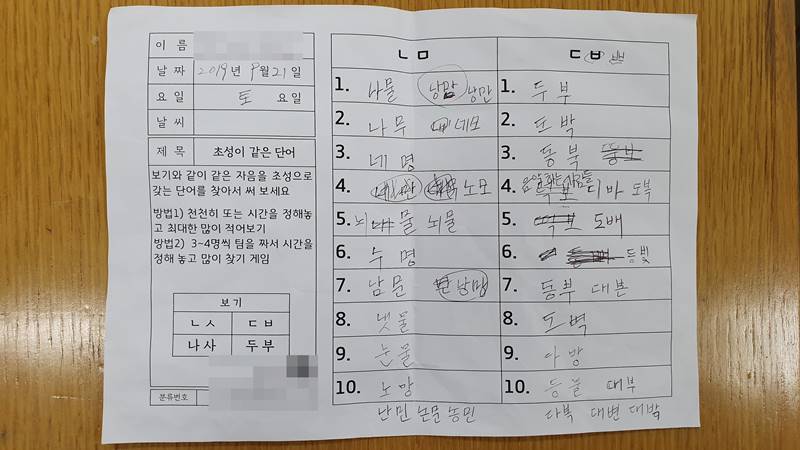 이 름
날 짜 2019년 9월 21일
요 일 토 요일
날 씨
제 목 초성이 같은 단어
보기와 같이 같은 자음을 초성으로
갖는 단어를 찾아서 써 보세요
방법1) 천천히 또는 시간을 정해놓
고 최대한 많이 적어보기
방법2) 3~4명씩 팀을 짜서 시간을
정해 놓고 많이 찾기 게임
보기
ㄴㅅ ㄷㅂ
나사 두부
분류번호
ㄴㅁ
1. 나물 낭만
2. 나무 네모
3. 네명
4. 노모
5. 뇌물
6. 명
7. 남문
8. 냇물
9. 눈물
10. 노망
난민 논문 농민
ㄷㅂ
1. 두부
2. 도박
3. 동북
4. 디바 도부
5. 도배
6. 등빛
7. 동부 대본
8. 도벽
9. 다방
10. 등불 대부
다복 대변 대박